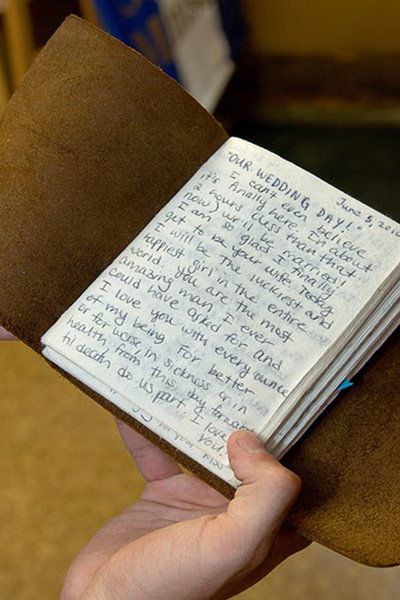 June 5, 2010
"OUR WEDDING DAY!"
I can't even believe
it's finally here. In about
2 hours (less than that
now) we'll be married!
I am so glad I finally
get to be your wife. Today
I will be the luckiest and
happiest girl in the entire
world. You are the most
amazing man I ever
could have asked for and
I love you with every ounce
of my being. For better
or for worse in sickness or in
health, from this day forward
'til death do us part. I love
you!